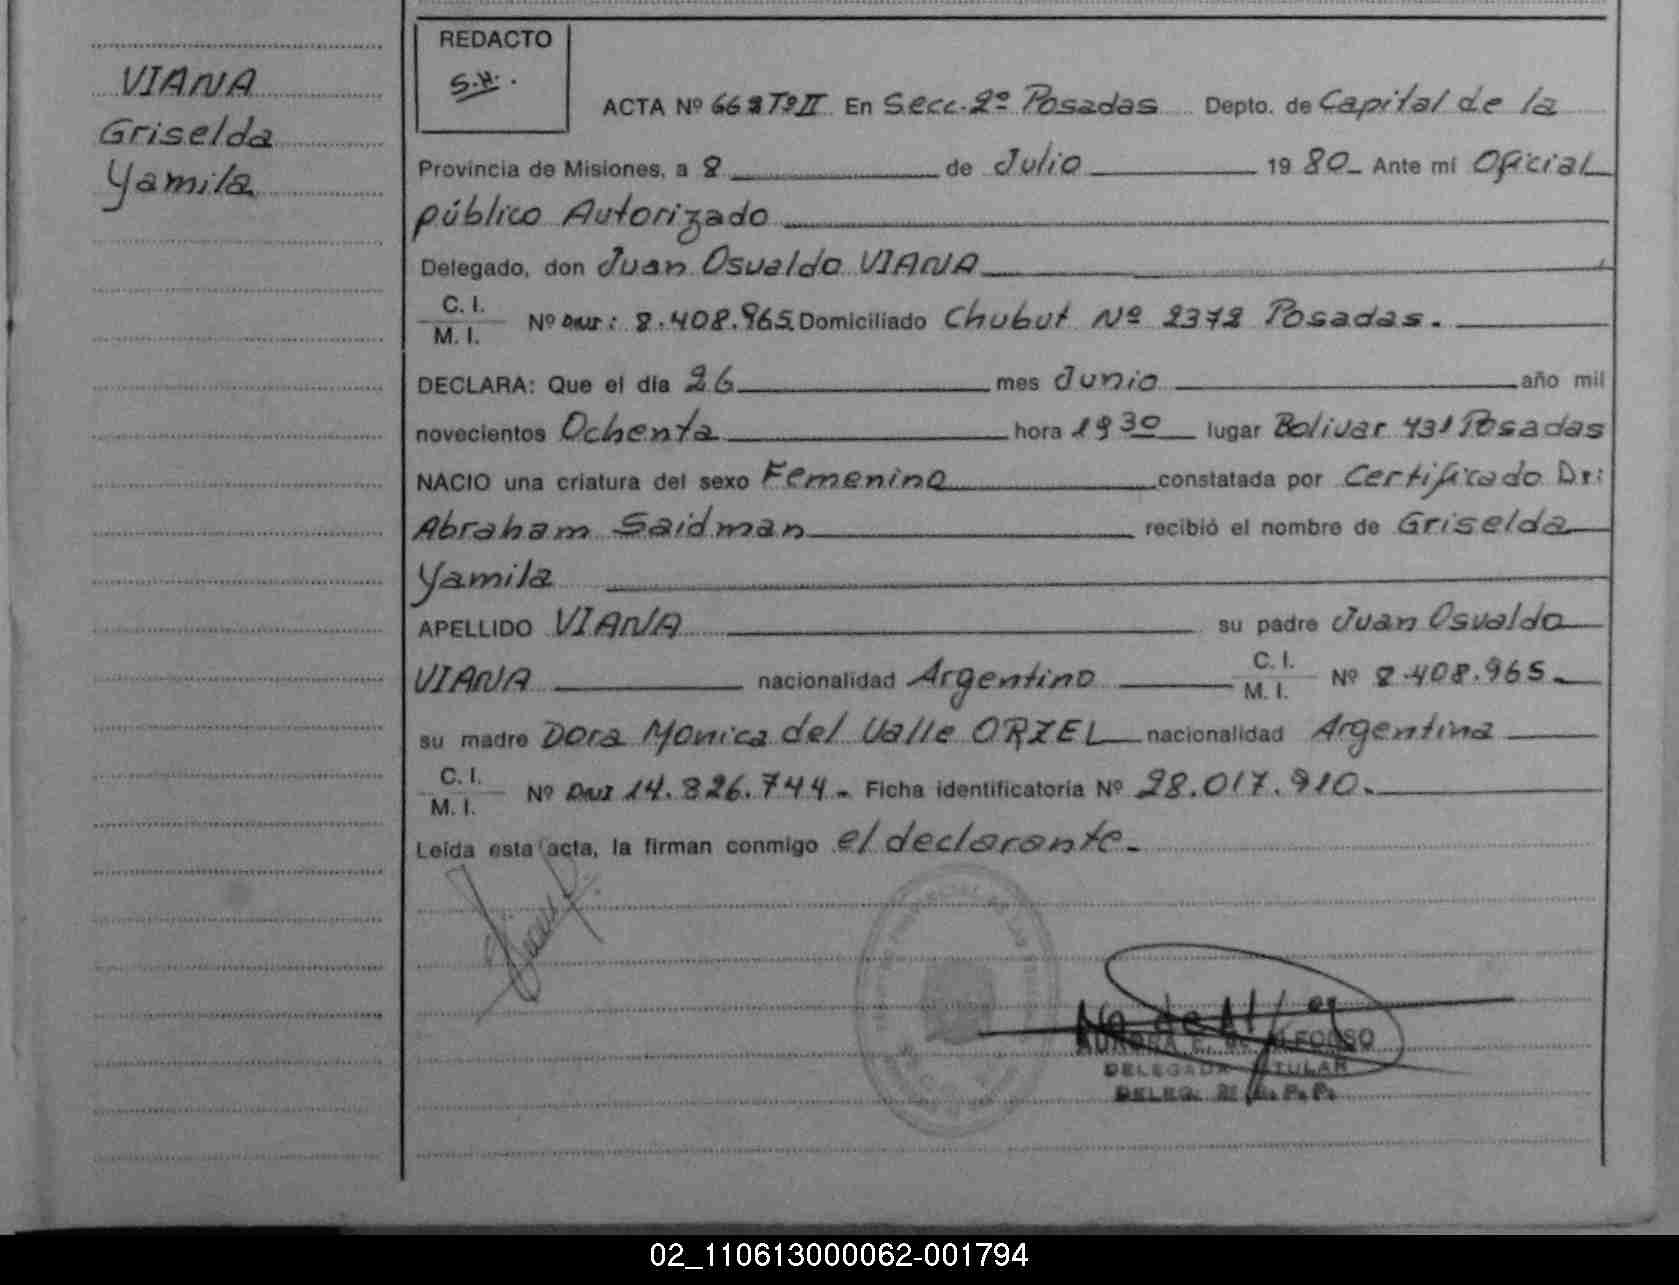 VIANA
Griselda
Yamila
REDACTO
S.H.
ACTA Nº 668 Tº II En Secc. 2º Posadas Depto. de Capital de la
Provincia de Misiones, a 8 de Julio 19 80 Ante mí Oficial
público Autorizado
Delegado, don Juan Osvaldo VIANA
C. I.
M. I. Nº DNI: 8.408.965 Domiciliado Chubut Nº 2372 Posadas.
DECLARA: Que el día 26 mes Junio año mil
novecientos Ochenta hora 19 30 lugar Bolivar 431 Posadas
NACIO una criatura del sexo Femenino constatada por Certificado Dr:
Abraham Saidman recibió el nombre de Griselda
Yamila
APELLIDO VIANA su padre Juan Osvaldo
VIANA nacionalidad Argentino C. I. M. I. Nº 8.408.965.
su madre Dora Monica del Valle ORZEL nacionalidad Argentina
C. I.
M. I. Nº DNI 14.826.744.- Ficha identificatoria Nº 28.017.910.
Leída esta acta, la firman conmigo el declarante.-
AURORA E. de ALFONSO
DELEGADA TITULAR
02_110613000062-001794